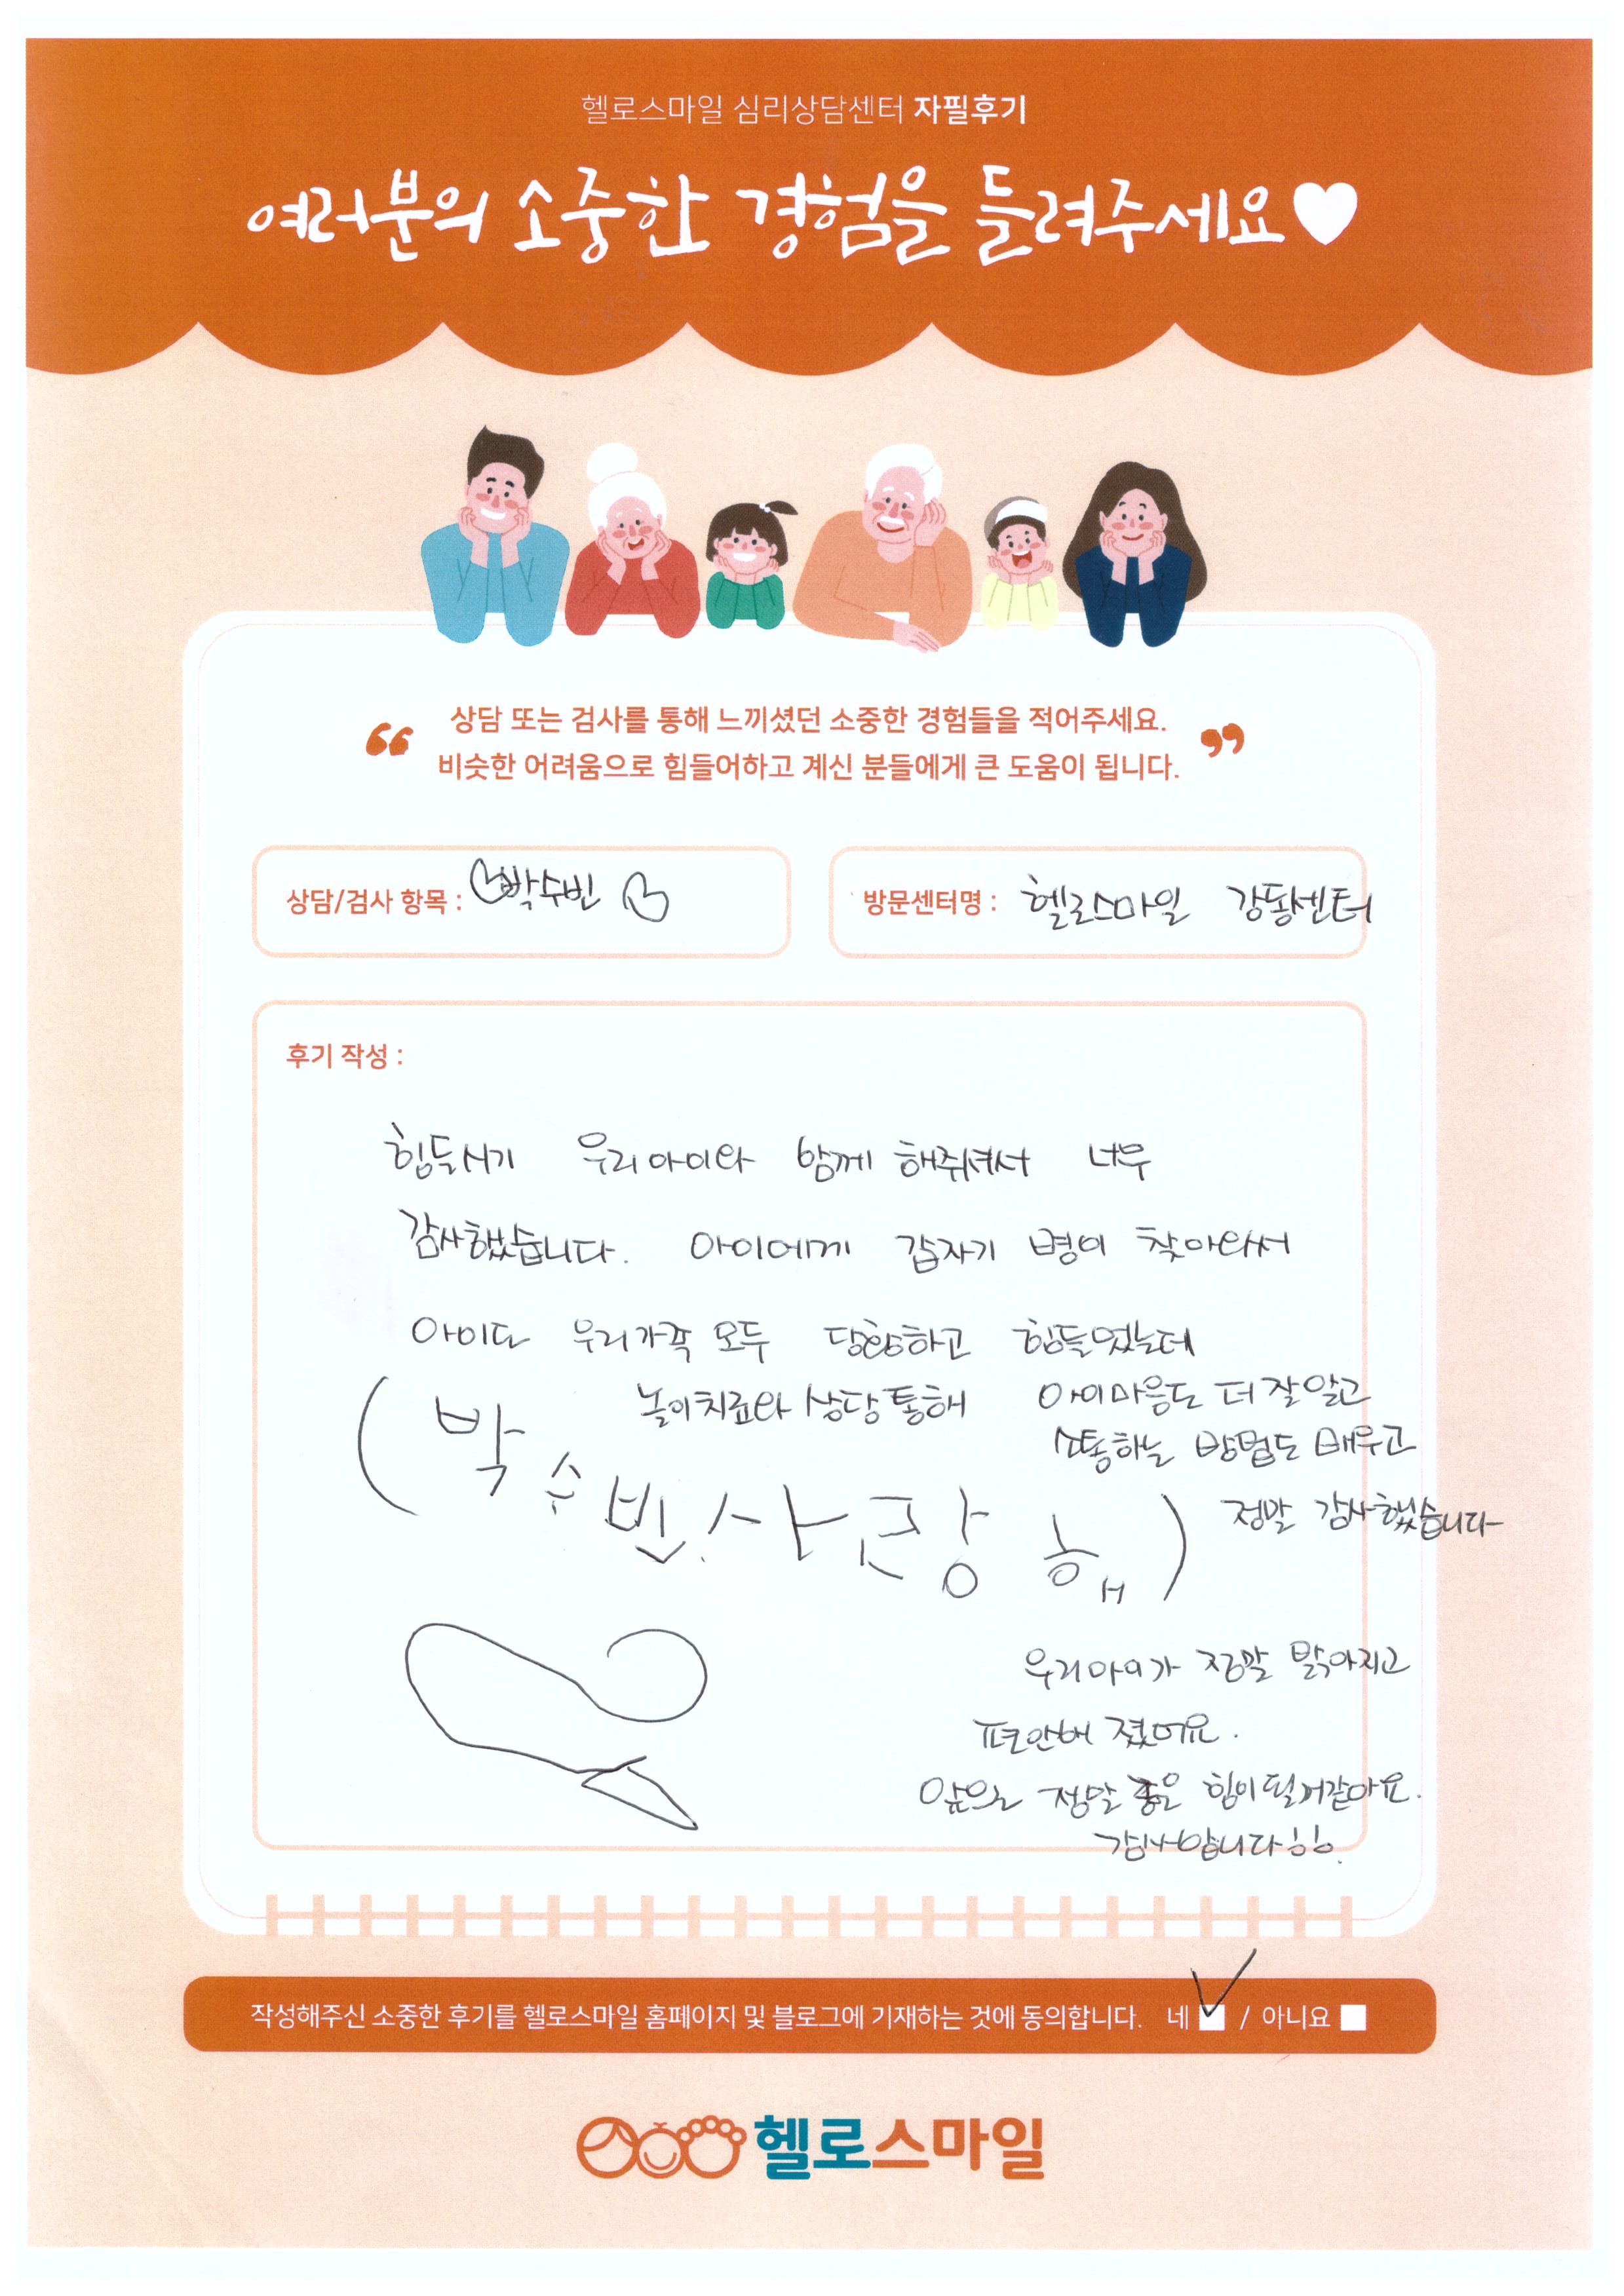 헬로스마일 심리상담센터 자필후기
여러분의 소중한 경험을 들려주세요
상담 또는 검사를 통해 느끼셨던 소중한 경험들을 적어주세요.
비슷한 어려움으로 힘들어하고 계신 분들에게 큰 도움이 됩니다.
상담/검사 항목 : 박수빈
방문센터명 : 헬로스마일 강동센터
후기 작성 :
힘든시기 우리아이와 함께 해줘서 너무
감사했습니다. 아이에게 갑자기 병이 찾아와서
아이도 우리가족 모두 당황하고 힘들었는데
놀이치료와 상담통해 아이마음도 더 잘알고
소통하는 방법도 배우고
정말 감사했습니다
(박수빈사랑해)
우리아이가 정말 밝아지고
편안해 졌어요.
앞으로 정말 좋은 힘이 될거같아요.
감사합니다
작성해주신 소중한 후기를 헬로스마일 홈페이지 및 블로그에 기재하는 것에 동의합니다. 네 / 아니요
헬로스마일